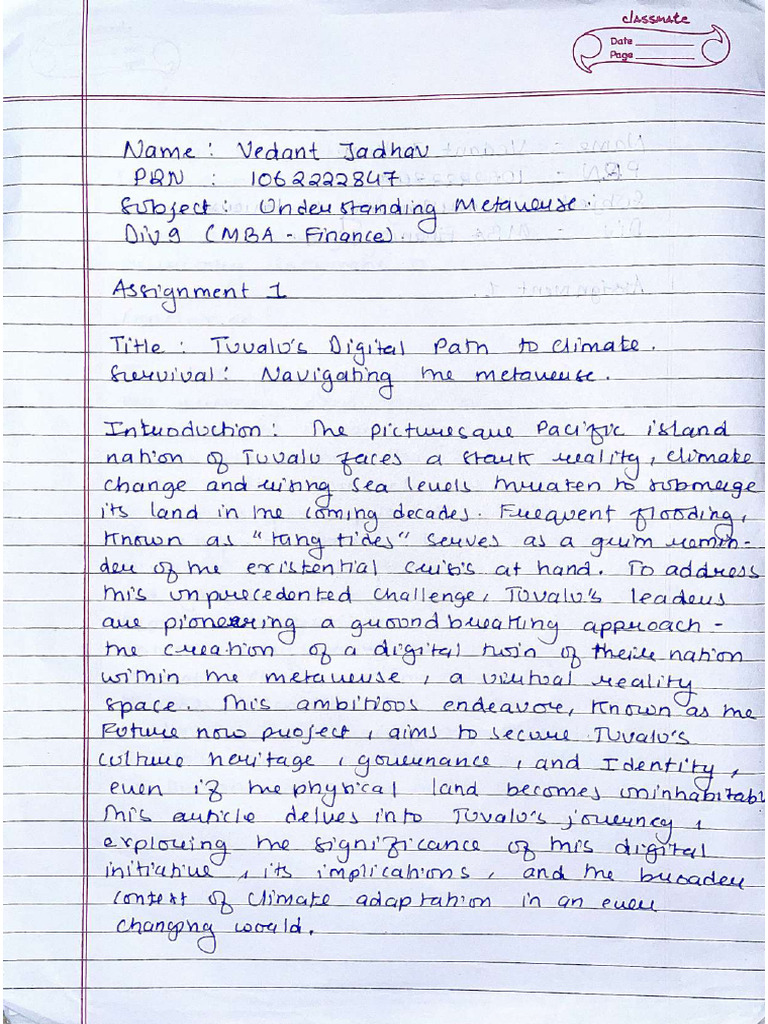 classmate
Date
Page
Name : Vedant Jadhav
PRN : 1062222847
Subject : Understanding Metaverse.
Div 9 (MBA - Finance).
Assignment 1
Title : Tuvalu's Digital Path to climate.
Survival : Navigating the metaverse.
Introduction : The picturesque Pacific island
nation of Tuvalu faces a stark reality, climate
change and rising sea levels threaten to submerge
its land in the coming decades. Frequent flooding,
known as "king tides" serves as a grim remin-
der of the existential crisis at hand. To address
this unprecedented challenge, Tuvalu's leaders
are pioneering a groundbreaking approach -
the creation of a digital twin of their nation
within the metaverse, a virtual reality
space. This ambitious endeavore, known as the
Future now project, aims to secure Tuvalu's
culture heritage, governance, and Identity,
even if the physical land becomes uninhabitabl
This article delves into Tuvalu's journey,
exploring the significance of this digital
initiative, its implications, and the broader
context of climate adaptation in an ever
changing world.